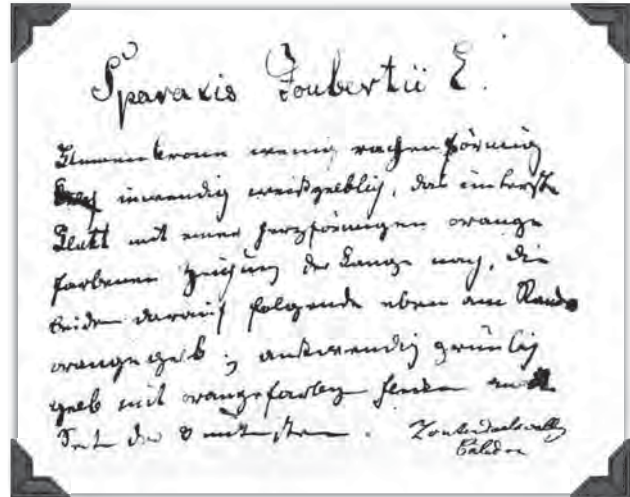 Sparaxis Joubertii E.
Blumenkrone wenig rachenförmig
inwendig weißgelblich, das unterste
Blatt mit einer herzförmigen orange
farbenen Zeichnung der Länge nach, die
beiden darauf folgende eben am Rande
orangegelb; auswendig grünlich
gelb mit orangefarbigen
Seite der 3 untersten.
Caledon